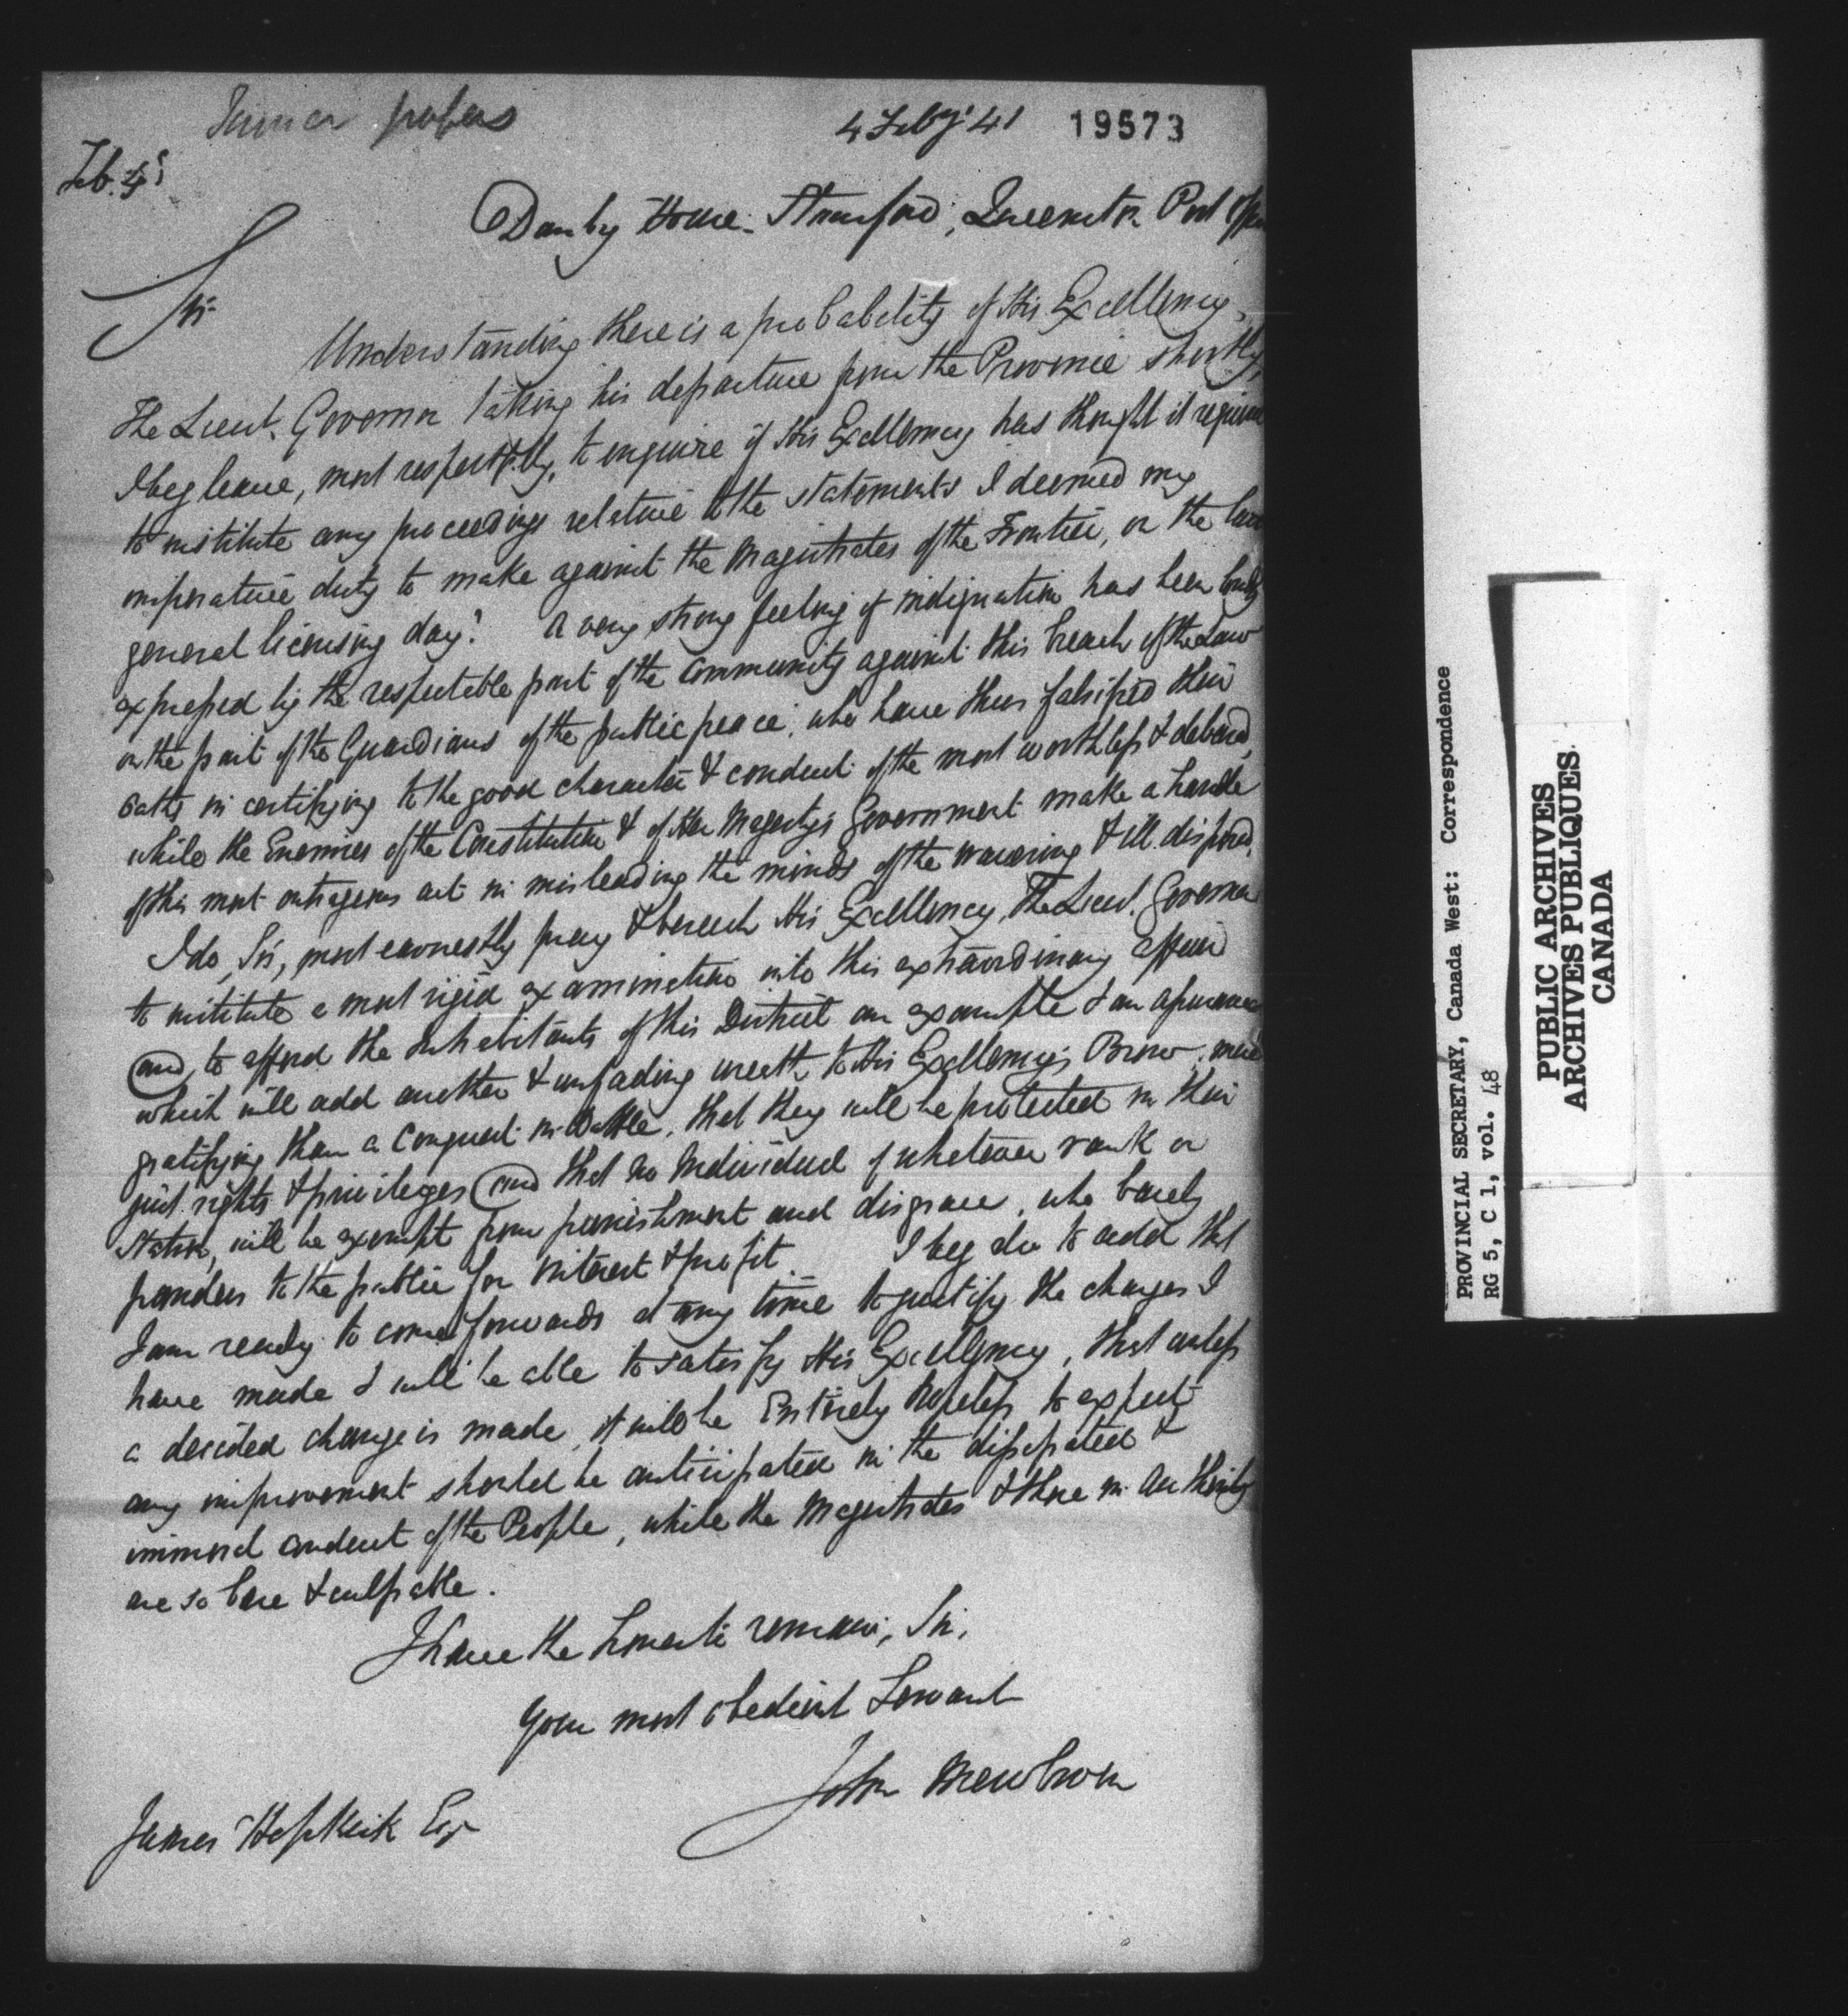 Former papers
4 Feby' 41 19573
Feb. 4
Danby House. Stamford, Queenston Post Office
Sir
Understanding there is a probability of His Excellency,
The Lieut. Governor taking his departure from the Province shortly,
I beg leave, most respectfully, to enquire if His Excellency has thought it
to institute any proceedings relative to the statements I deemed my
imperative duty to make against the Magistrates of the Frontier, on the
general licensing day? A very strong feeling of indignation has been
expressed by the respectable part of the Community against this breach of the Law
on the part of the Guardians of the public peace, who have thus falsified their
oaths in certifying to the good character & conduct of the most worthless & debased,
while the Enemies of the Constitution & of Her Majesty's Government make a handle
of this most outrageous act in misleading the minds of the wavering & ill disposed.
I do, Sir, most earnestly pray & beseech His Excellency, The Lieut. Governor
to institute a most rigid examination into this extraordinary affair
and, to afford the Inhabitants of this District an example & an assurance
which will add another & unfading wreath to His Excellency's Brow, more
gratifying than a Conquest in Battle, that they will be protected in their
just rights & privileges and that no Individual of whatever rank or
Station, will be exempt from punishment and disgrace, who basely
panders to the public for interest & profit. I beg also to add that
I am ready to come forwards at any time to justify the charges I
have made & will be able to satisfy His Excellency, that unless
a decided change is made, it will be Entirely hopeless to expect
any improvement should be anticipated in the dissipated &
immoral conduct of the People, while the Magistrates & those in Authority
are so base & culpable.
I have the honor to remain, Sir,
Your most obedient Servant
John Mewburn
James Hopkirk Esqr
PROVINCIAL SECRETARY, Canada West: Correspondence
RG 5, C 1, vol. 48
PUBLIC ARCHIVES
ARCHIVES PUBLIQUES
CANADA